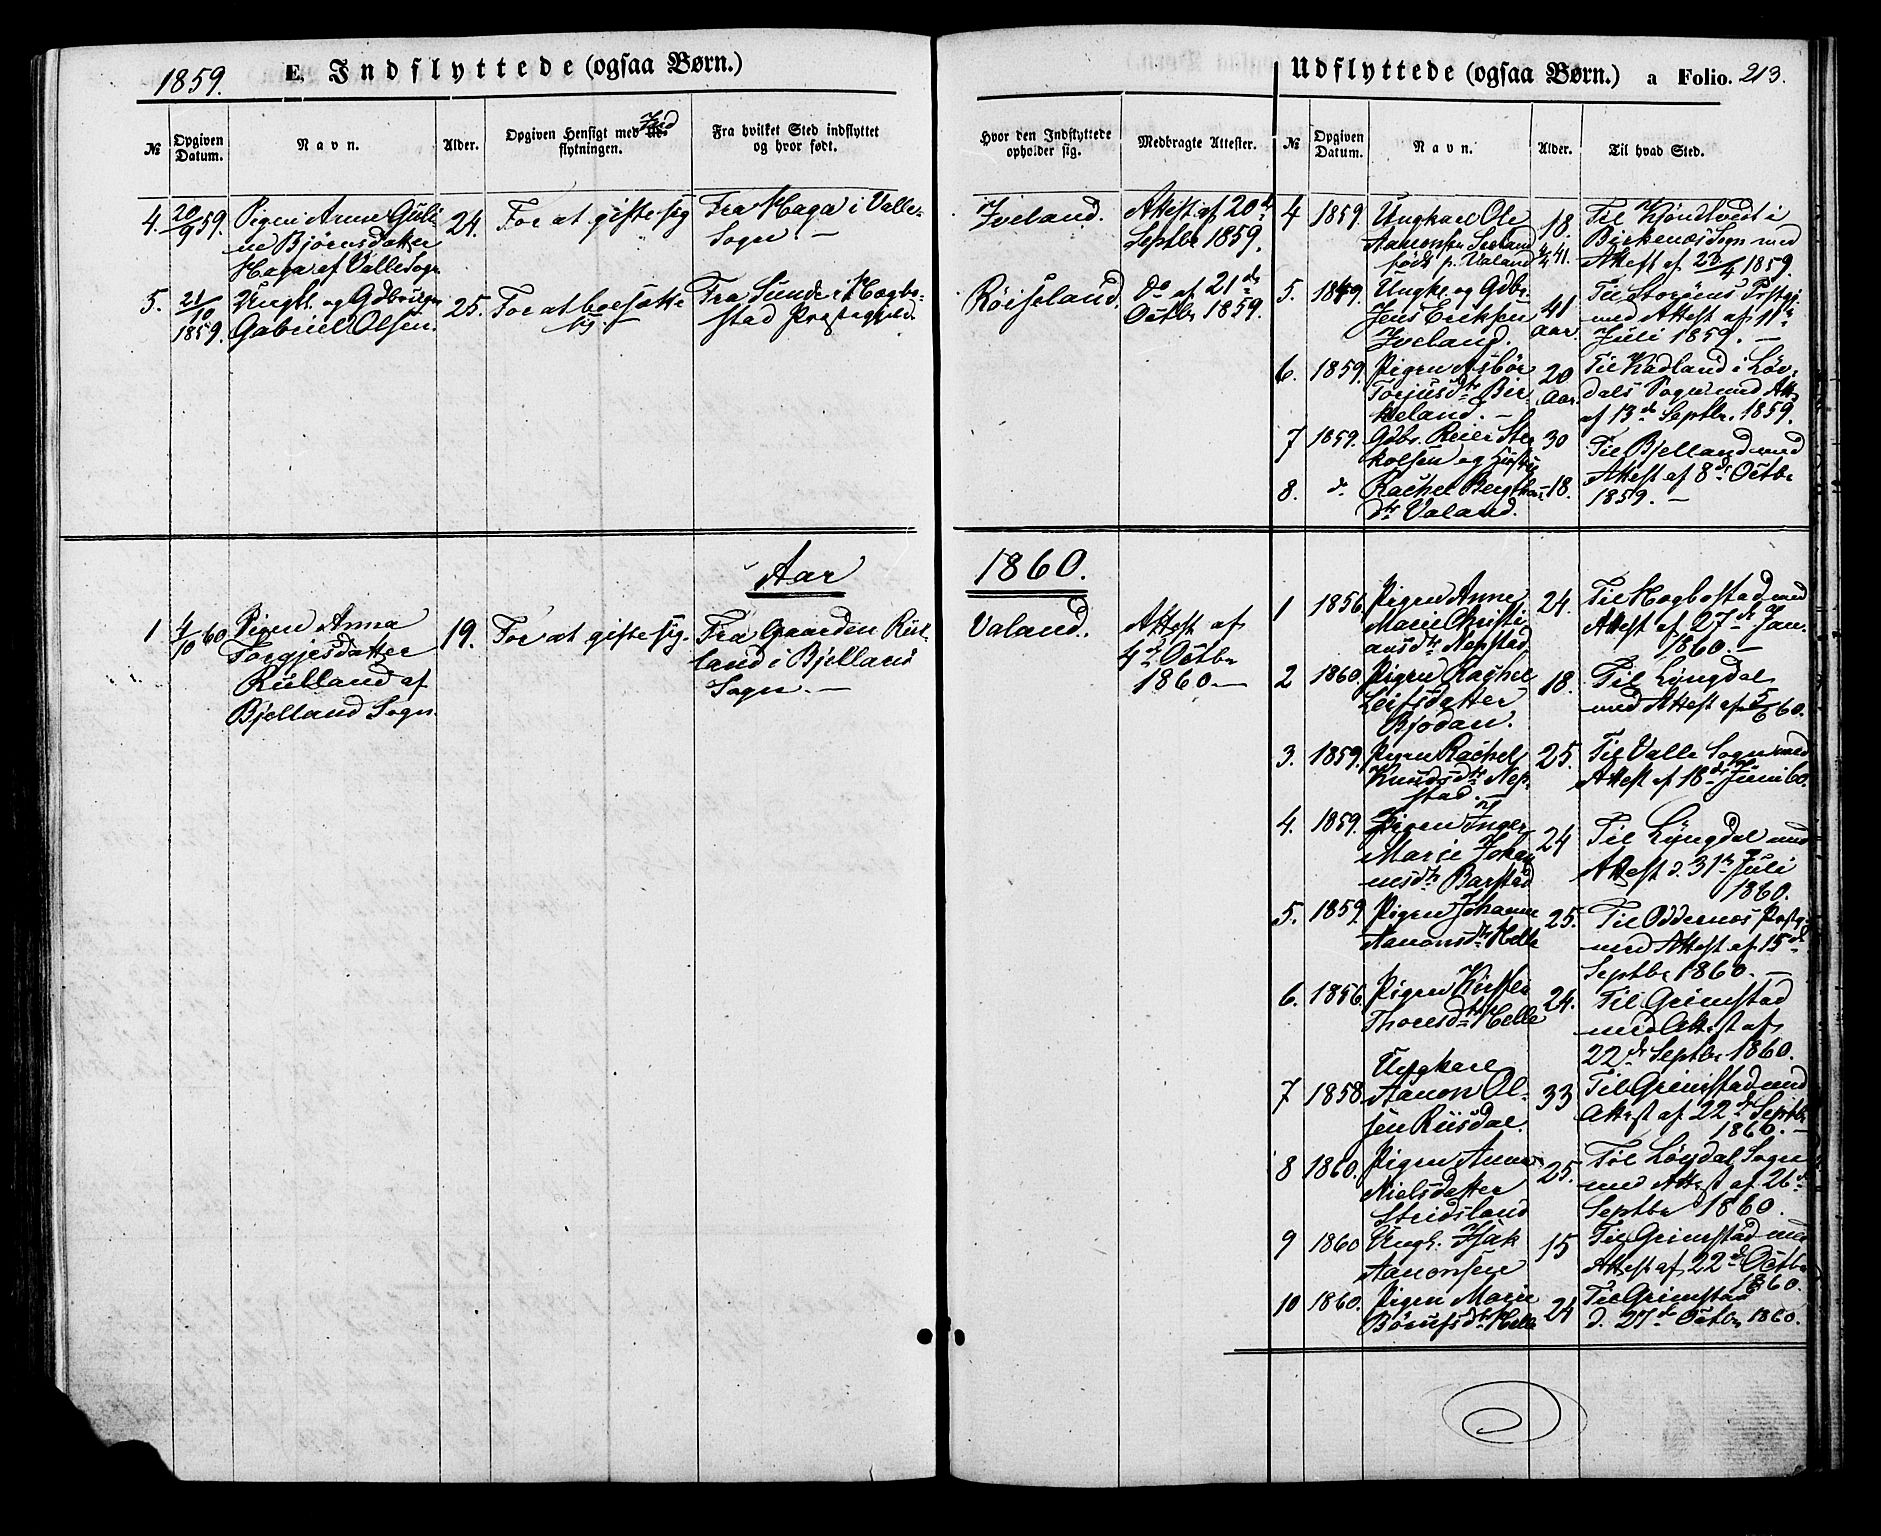 1859.
E. Indflyttede (ogsaa Børn.)
№
Opgiven Datum.
Navn.
Alder.
Opgiven Hensigt med Ind
flytningen.
Fra hvilket Sted indflyttet
og hvor født.
4.
20/9 59.
Pigen Anne Guli
ne Bjørnsdatter
Haga af Valle Sogn
24.
For at gifte sig
Fra Haga i Valle
Sogn. —
5.
21/10
1859.
Ungk. og
Gabriel Olsen.
25.
For at bosætte
sig. —
Fra Sunde i Hægbo-
stad Præstegjeld.
Aar
1
4/10 60
Pigen Anna
Torgjesdatter
af
Bjelland Sogn.
19.
For at gifte sig.
Fra Gaarden
land i Bjelland
Sogn. —
Udflyttede (ogsaa Børn.) a Folio. 213.
Hvor den Indflyttede
opholder sig.
Medbragte Attester.
№
Opgiven
Datum.
Navn.
Alder.
Til hvad Sted.
Iveland.
Attest af 20de
Septbr 1859.
Røiseland.
do af 21de
Octbr 1859.
4
1859.
Ungkarl Ole
Aanonsen
født p. Valand
18.
Til
Birkenæs Sogn med
Attest af 1859.
5.
Ungk. og Gdbr
Jens Eriksen
Iveland.
41
Aar.
Til Præstgj.
med Attest af 11te
Juli 1859. —
6.
1859.
Pigen Asbør
Torjusdr Bir-
keland. —
20
Aar.
Til i
dals Sogn med Att.
af 13de Septbr. 1859.
7
1859.
Gdbr. Reier
og Hustru
30
Til Bjelland med
Attest af 8de Octbr
1859. —
8.
d.
Rachel
dr Valand.
18.
1860.
Valand.
Attest af
4de Octbr
1860 —
1
1856.
Pigen Anne
Marie Christi
ansdr Nepstad.
24.
Til Hægbostad med
Attest af 27de Jan.
1860. —
2
1860.
Pigen Rachel
Leifsdatter
Bjodan.
18.
Til Lyngdal
med Attest af 5/6 60.
3.
1859.
Pigen Rachel
Knudsdr Nep-
stad. —
25.
Til Valle Sogn med
Attest af 18de Juni 60.
4.
1859.
Pigen Inger
Marie Johan
nesdr Barstad
24
Til Lyngdal med
Attest d. 31te Juli
1860.
5.
1859.
Pigen Johanne
Aanonsdr Helle
25.
Til Oddernes Præstg.
med Attest af 15de
Septbr 1860. —
6.
1856.
Pigen Kirsten
Thoresdr Helle
24.
Til Grimstad
med Attest af
22de Septbr 1860.
7
1858
Ungkarl
Aanon Ol-
sen Riisdal.
33
Til Grimstad med
Attest af 22de Septbr
1860. —
8
1860.
Pigen Anne
Nielsdatter
Stridsland
25.
Til Løvdal Sogn
med Attest af 26de
Septbr 1860.
9
1860
Ungk. Isak
Aanonsen
15
Til Grimstad med
Attest af 22de Octbr
1860.
10
1860.
Pigen Marie
Børufsdr Helle
24
Til Grimstad
d. 27de Octbr 1860.